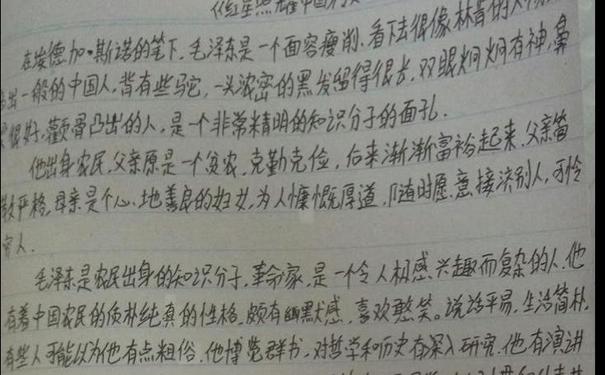 《红星照耀中国》
在埃德加·斯诺的笔下,毛泽东是一个面容瘦削.看下去很像林肯的人物.
出一般的中国人,背有些驼,一头浓密的黑发留得很长,双眼炯炯有神,鼻
很好,颧骨凸出的人,是一个非常精明的知识分子的面孔.
他出身农民,父亲原是一个贫农,克勤克俭,后来渐渐富裕起来,父亲管
教严格,母亲是个心地善良的妇女,为人慷慨厚道,随时愿意接济别人,可怜
穷人.
毛泽东是农民出身的知识分子,革命家,是一个令人相感兴趣而复杂的人.他
有着中国农民的质朴纯真的性格,颇有幽默感,喜欢憨笑。说话平易,生活简朴,
有些人可能以为他有点粗俗.他博览群书,对哲学和历史有深入研究.他有演讲